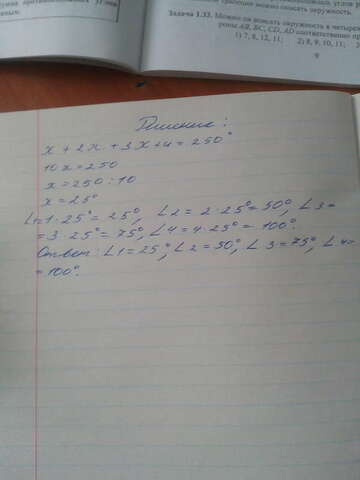 окружность.
Задача 1.33. Можно ли вписать окружность в четырех
роны AB, BC, CD, AD соответственно
1) 7, 8, 12, 11; 2) 8, 9, 10, 11; 3)
9
Решение:
x + 2x + 3x + 4 = 250°
10x = 250
x = 250 : 10
x = 25°
∠1 = 1 · 25° = 25°, ∠2 = 2 · 25° = 50°, ∠3 =
= 3 · 25° = 75°, ∠4 = 4 · 25° = 100°.
Ответ: ∠1 = 25°, ∠2 = 50°, ∠3 = 75°, ∠4 =
= 100°.